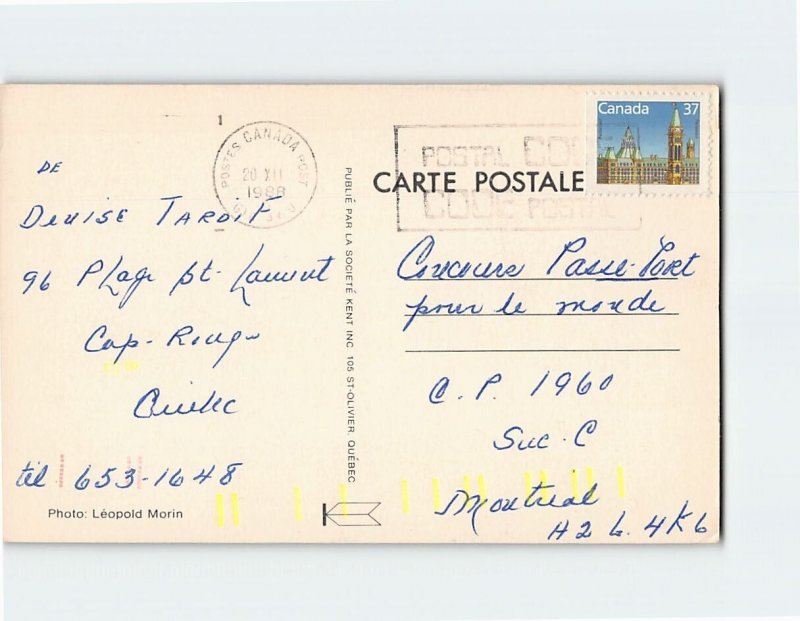 Canada 37
POSTES CANADA POST
20 XII
1988
POSTAL CODE
CODE POSTAL
CARTE POSTALE
DE
DENISE TARDIF
96 Plage St-Laurent
Cap-Rouge
Québec
tél 653-1648
Photo: Léopold Morin
PUBLIÉ PAR LA SOCIETÉ KENT INC. 105 ST-OLIVIER, QUÉBEC
Concours Passe-Port
pour le monde
C.P. 1960
Suc. C
Montreal
H2L 4K6